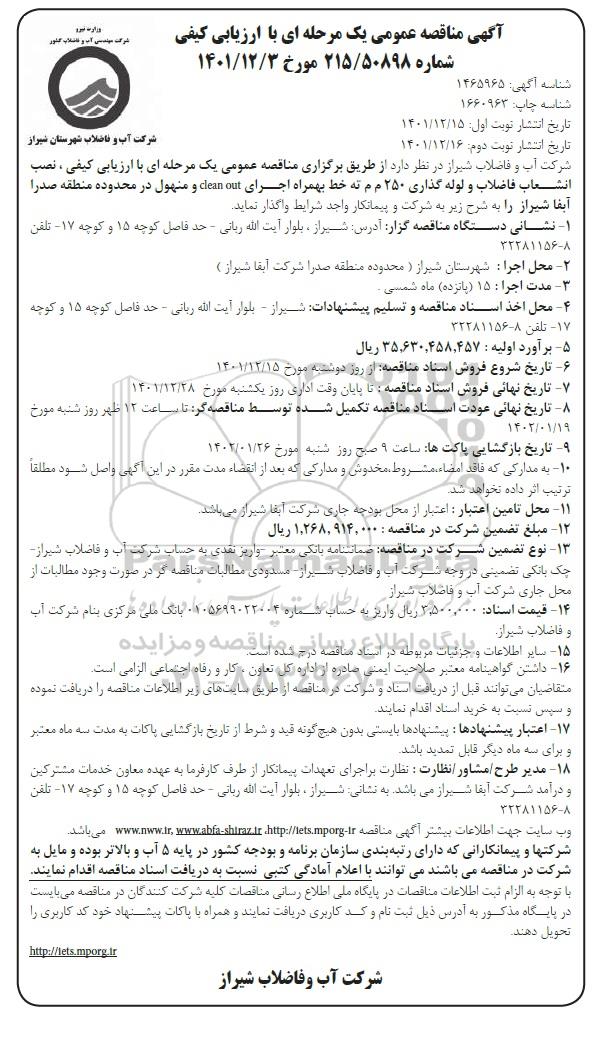 وزارت نیرو
شرکت مهندسی آب و فاضلاب کشور
شرکت آب و فاضلاب شهرستان شیراز
آگهی مناقصه عمومی یک مرحله ای با ارزیابی کیفی
شماره ۲۱۵/۵۰۸۹۸ مورخ ۱۴۰۱/۱۲/۳
شناسه آگهی: ۱۴۶۵۹۶۵
شناسه چاپ: ۱۶۶۰۹۶۳
تاریخ انتشار نوبت اول: ۱۴۰۱/۱۲/۱۵
تاریخ انتشار نوبت دوم: ۱۴۰۱/۱۲/۱۶
شرکت آب و فاضلاب شیراز در نظر دارد از طریق برگزاری مناقصه عمومی یک مرحله ای با ارزیابی کیفی ، نصب
انشعاب فاضلاب و لوله گذاری ۲۵۰ م م ته خط بهمراه اجرای clean out و منهول در محدوده منطقه صدرا
آبفا شیراز را به شرح زیر به شرکت و پیمانکار واجد شرایط واگذار نماید.
۱- نشانی دستگاه مناقصه گزار: آدرس: شیراز ، بلوار آیت الله ربانی - حد فاصل کوچه ۱۵ و کوچه ۱۷- تلفن
۳۲۲۸۱۱۵۶-۸
۲- محل اجرا : شهرستان شیراز ( محدوده منطقه صدرا شرکت آبفا شیراز )
۳- مدت اجرا : ۱۵ (پانزده) ماه شمسی .
۴- محل اخذ اسناد مناقصه و تسلیم پیشنهادات: شیراز - بلوار آیت الله ربانی - حد فاصل کوچه ۱۵ و کوچه
۱۷- تلفن ۸-۳۲۲۸۱۱۵۶
۵- برآورد اولیه : ۳۵,۶۳۰,۴۵۸,۴۵۷ ریال
۶- تاریخ شروع فروش اسناد مناقصه: از روز دوشنبه مورخ ۱۴۰۱/۱۲/۱۵
۷- تاریخ نهائی فروش اسناد مناقصه : تا پایان وقت اداری روز یکشنبه مورخ ۱۴۰۱/۱۲/۲۸
۸- تاریخ نهائی عودت اسناد مناقصه تکمیل شده توسط مناقصه‌گر: تا ساعت ۱۲ ظهر روز شنبه مورخ
۱۴۰۲/۰۱/۱۹
۹- تاریخ بازگشایی پاکت ها: ساعت ۹ صبح روز شنبه مورخ ۱۴۰۲/۰۱/۲۶
۱۰- به مدارکی که فاقد امضاء،مشروط،مخدوش و مدارکی که بعد از انقضاء مدت مقرر در این آگهی واصل شود مطلقاً
ترتیب اثر داده نخواهد شد.
۱۱- محل تامین اعتبار : اعتبار از محل بودجه جاری شرکت آبفا شیراز می‌باشد.
۱۲- مبلغ تضمین شرکت در مناقصه : ۱,۲۶۸,۹۱۴,۰۰۰ ریال
۱۳- نوع تضمین شرکت در مناقصه: ضمانتنامه بانکی معتبر -واریز نقدی به حساب شرکت آب و فاضلاب شیراز-
چک بانکی تضمینی در وجه شرکت آب و فاضلاب شیراز- مسدودی مطالبات مناقصه گر در صورت وجود مطالبات از
محل جاری شرکت آب و فاضلاب شیراز
۱۴- قیمت اسناد: ۳,۵۰۰,۰۰۰ ریال واریز به حساب شماره ۰۱۰۵۶۹۹۰۲۲۰۰۴ بانک ملی مرکزی بنام شرکت آب
و فاضلاب شیراز.
۱۵- سایر اطلاعات و جزئیات مربوطه در اسناد مناقصه درج شده است.
۱۶- داشتن گواهینامه معتبر صلاحیت ایمنی صادره از اداره کل تعاون ، کار و رفاه اجتماعی الزامی است.
متقاضیان می‌توانند قبل از دریافت اسناد و شرکت در مناقصه از طریق سایت‌های زیر اطلاعات مناقصه را دریافت نموده
و سپس نسبت به خرید اسناد اقدام نمایند.
۱۷- اعتبار پیشنهادها : پیشنهادها بایستی بدون هیچ‌گونه قید و شرط از تاریخ بازگشایی پاکات به مدت سه ماه معتبر
و برای سه ماه دیگر قابل تمدید باشد.
۱۸- مدیر طرح/مشاور/نظارت : نظارت براجرای تعهدات پیمانکار از طرف کارفرما به عهده معاون خدمات مشترکین
و درآمد شرکت آبفا شیراز می باشد. به نشانی: شیراز ، بلوار آیت الله ربانی - حد فاصل کوچه ۱۵ و کوچه ۱۷- تلفن
۳۲۲۸۱۱۵۶-۸
وب سایت جهت اطلاعات بیشتر آگهی مناقصه www.nww.ir, www.abfa-shiraz.ir ,http://iets.mporg-ir می‌باشد.
شرکتها و پیمانکارانی که دارای رتبه‌بندی سازمان برنامه و بودجه کشور در پایه ۵ آب و بالاتر بوده و مایل به
شرکت در مناقصه می باشند می توانند با اعلام آمادگی کتبی نسبت به دریافت اسناد مناقصه اقدام نمایند.
با توجه به الزام ثبت اطلاعات مناقصات در پایگاه ملی اطلاع رسانی مناقصات کلیه شرکت کنندگان در مناقصه می‌بایست
در پایگاه مذکور به آدرس ذیل ثبت نام و کد کاربری دریافت نمایند و همراه با پاکات پیشنهاد خود کد کاربری را
تحویل دهند.
http://iets.mporg.ir
شرکت آب وفاضلاب شیراز
پایگاه اطلاع رسانی مناقصه و مزایده
۰۲۱-۸۸۳۴۹۶۷۰-۵